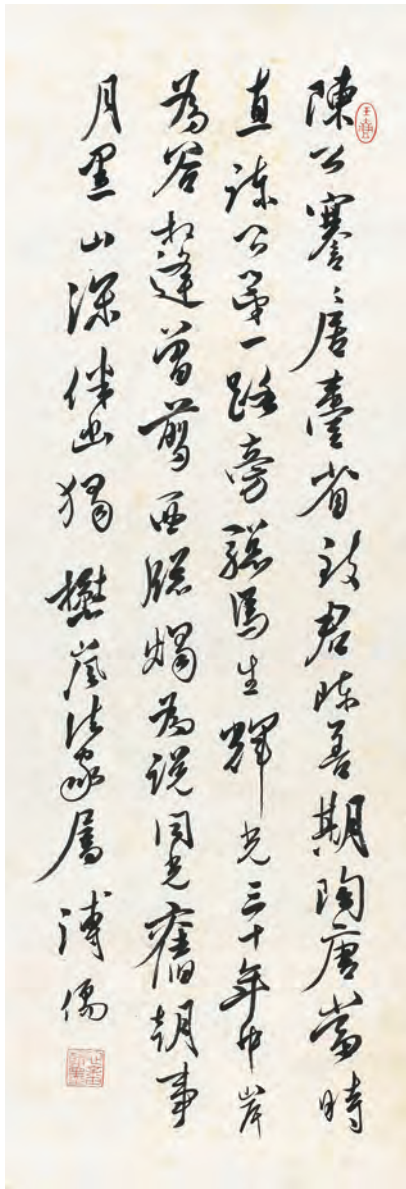 陳公謇謇居臺省致君陳善期陶唐當時
直諫公第一路旁驄馬生輝光三十年中岸
為谷相逢曾剪西牕燭為說同光舊朝事
月黑山深伴幽獨 懋嵐法家屬 溥儒